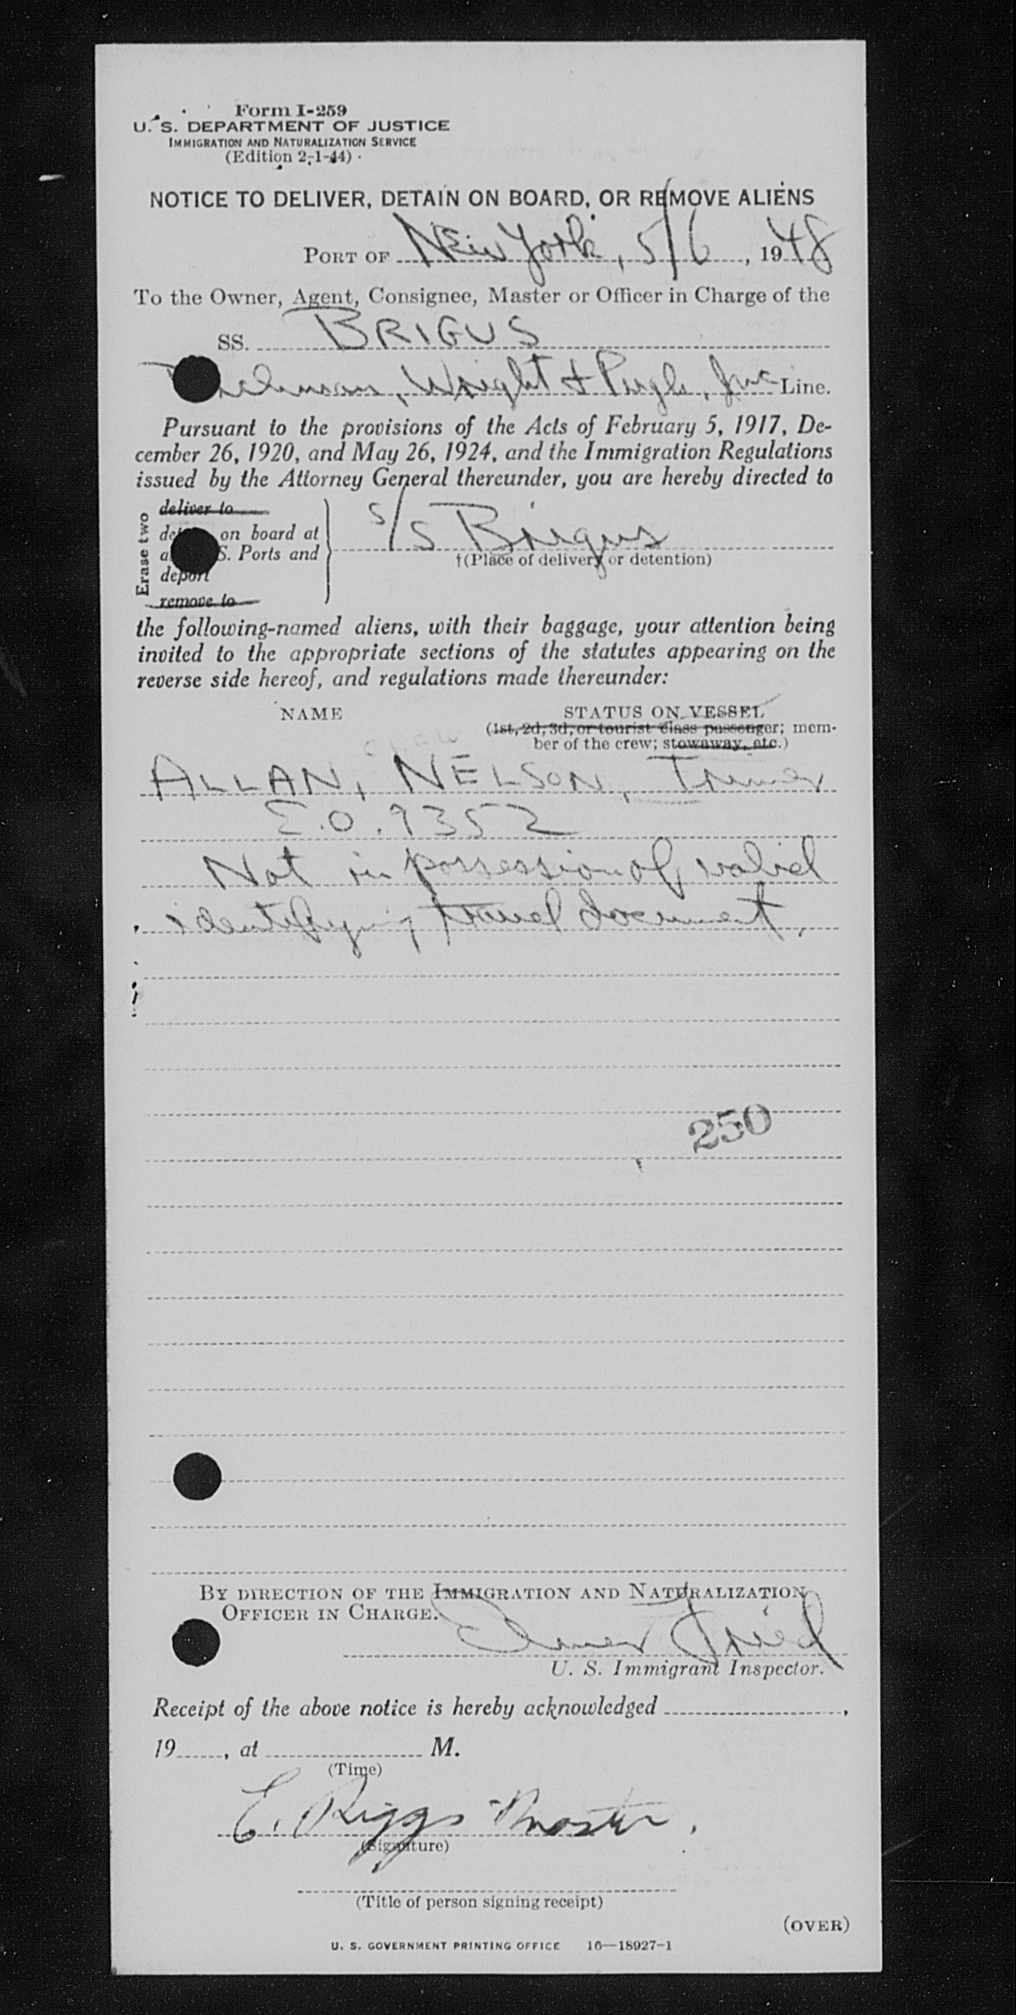 Form I-259
U. S. DEPARTMENT OF JUSTICE
IMMIGRATION AND NATURALIZATION SERVICE
(Edition 2-1-44)
NOTICE TO DELIVER, DETAIN ON BOARD, OR REMOVE ALIENS
PORT OF New York, 5/6, 1948
To the Owner, Agent, Consignee, Master or Officer in Charge of the
SS. BRIGUS
Wright & Pugh, Inc Line.
Pursuant to the provisions of the Acts of February 5, 1917, De-
cember 26, 1920, and May 26, 1924, and the Immigration Regulations
issued by the Attorney General thereunder, you are hereby directed to
Erase two
deliver to
on board at
S. Ports and
deport
remove to
S/S Brigus
†(Place of delivery or detention)
the following-named aliens, with their baggage, your attention being
invited to the appropriate sections of the statutes appearing on the
reverse side hereof, and regulations made thereunder:
NAME
STATUS ON VESSEL
(1st, 2d, 3d, or tourist class passenger; mem-
ber of the crew; stowaway, etc.)
ALLAN, NELSON, Trimmer
E.O. 9352
Not in possession of valid
identifying travel document.
250
BY DIRECTION OF THE IMMIGRATION AND NATURALIZATION
OFFICER IN CHARGE.
Elmer Fried
U. S. Immigrant Inspector.
Receipt of the above notice is hereby acknowledged ,
19 , at M.
(Time)
E. Riggs Master.
(Signature)
(Title of person signing receipt)
(OVER)
U. S. GOVERNMENT PRINTING OFFICE 16—18927-1